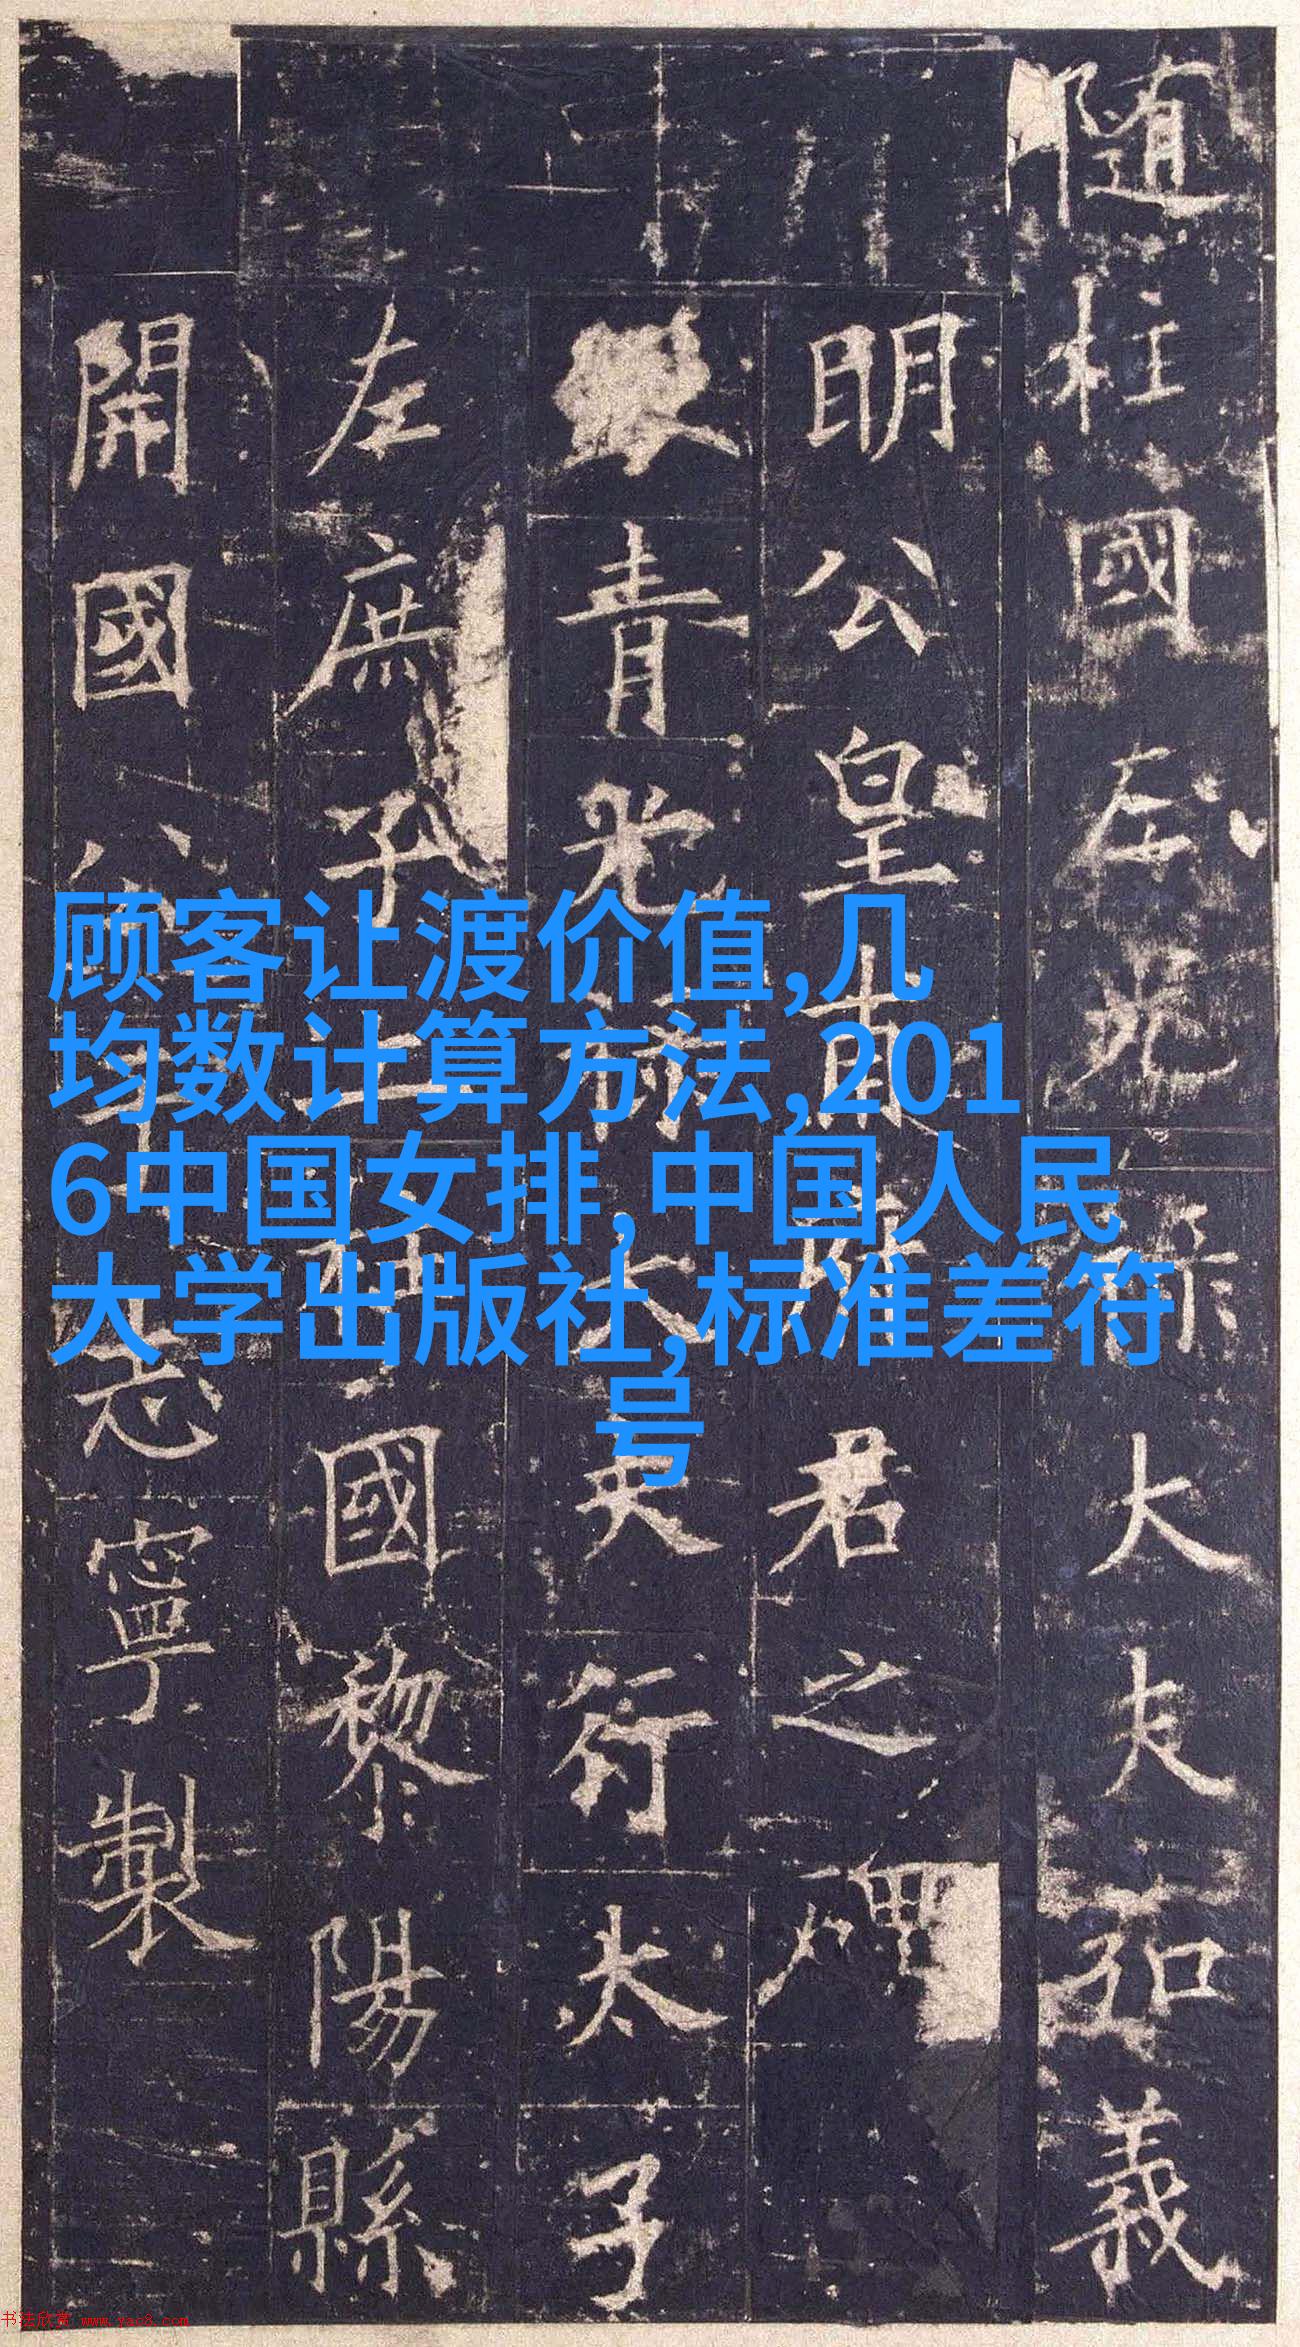 隨柱國左光祿大夫弘義
明公皇甫府君之碑
銀青光祿大夫行太子
左庶子上柱國黎陽縣
開國公于志寧製
顾客让渡价值,几
均数计算方法,201
6中国女排,中国人民
大学出版社,标准差符
号
书法欣赏 www.yac8.com